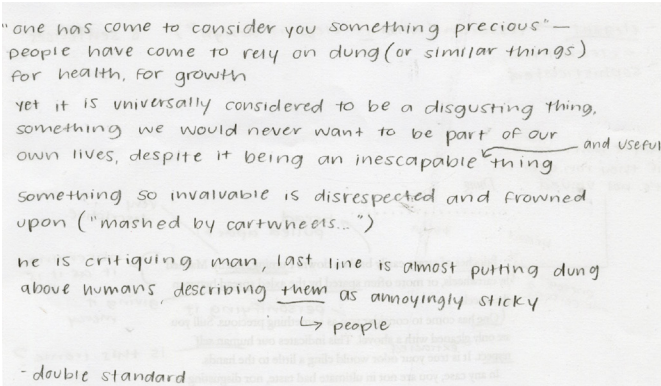 "one has come to consider you something precious" —
people have come to rely on dung (or similar things)
for health, for growth
yet it is universally considered to be a disgusting thing,
something we would never want to be part of our
own lives, despite it being an inescapable and useful thing
something so invaluable is disrespected and frowned
upon ("mashed by cartwheels...")
he is critiquing man, last line is almost putting dung
above humans, describing them as annoyingly sticky
↳ people
- double standard